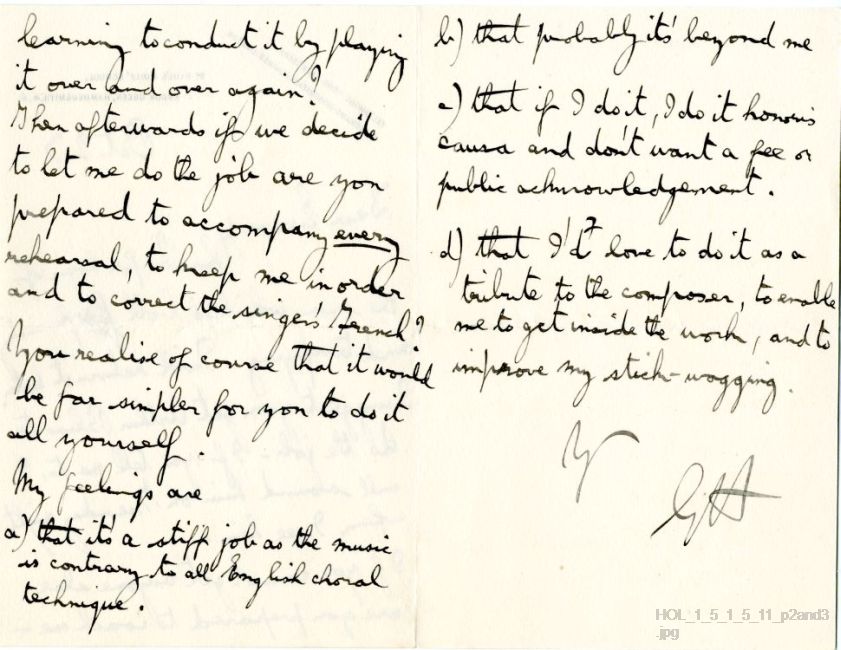 learning to conduct it by playing
it over and over again?
Then afterwards if we decide
to let me do the job are you
prepared to accompany every
rehearsal, to keep me in order
and to correct the singer's French?
You realise of course that it would
be far simpler for you to do it
all yourself.
My feelings are
a) that it's a stiff job as the music
is contrary to all English choral
technique.
b) that probably it's beyond me
c) that if I do it, I do it honoris
causa and don't want a fee or
public acknowledgement.
d) that I'd love to do it as a
tribute to the composer, to enable
me to get inside the work, and to
improve my stick-wagging.
Yr
GH
HOL_1_5_1_5_11_p2and3
.jpg